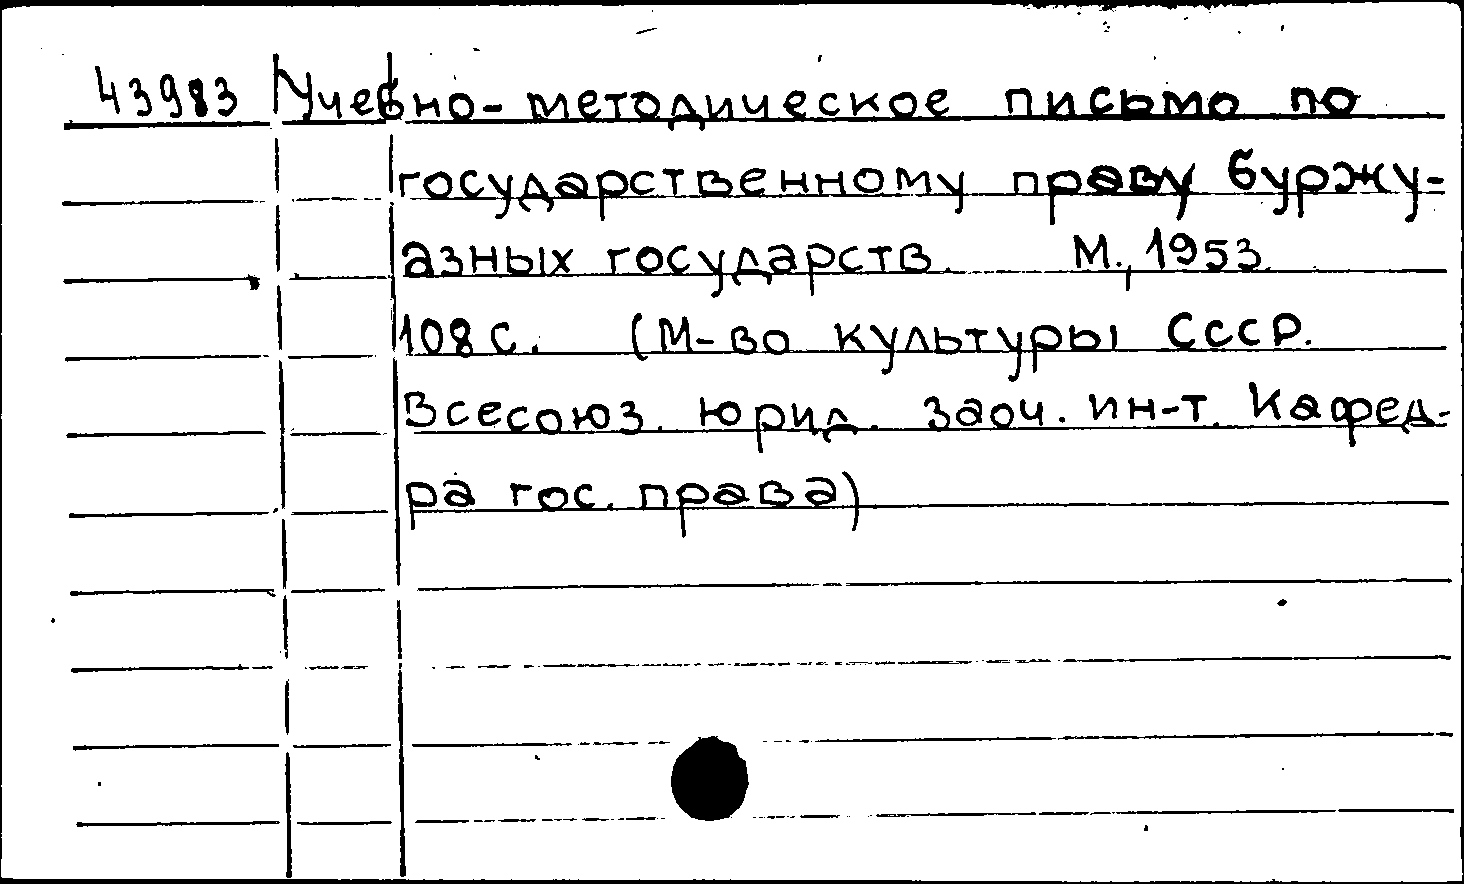 43983 Учебно-методическое письмо по
государственному праву буржу-
азных государств. М., 1953.
108 с. (М-во культуры СССР.
Всесоюз. юрид. заоч. ин-т. Кафед-
ра гос. права)